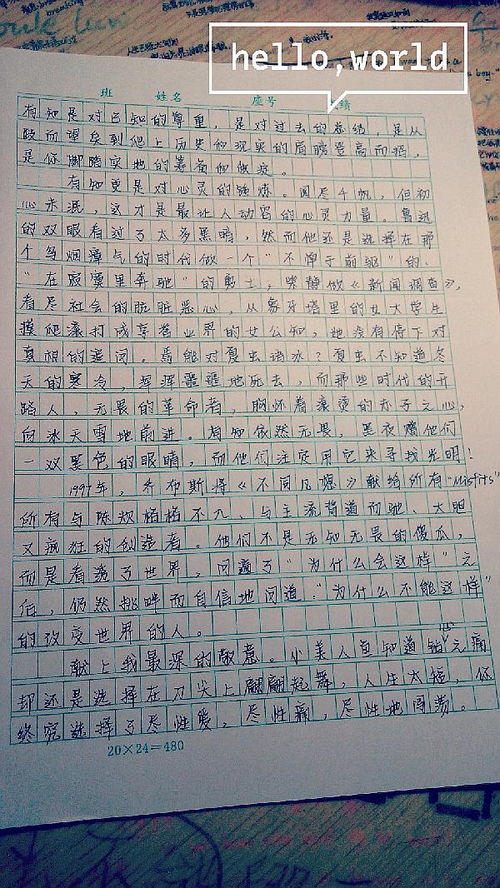 hello,world
班 姓名 座号 成绩
有知是对已知的尊重，是对过去的总结，是从
而望矣到爬上历史和现实的肩膀登高而招，
是你脚踏实地的
有知更是对心灵的锤炼。阅尽千帆，但初
心未泯，这才是最让人动容的心灵力量。鲁迅
的双眼看过了太多黑暗，然而他还是选择在那
个乌烟瘴气的时代做一个“不惮于前驱”的、
“在寂寞里奔驰”的勇士，柴静做《新闻调查》，
看尽社会的肮脏恶心，从象牙塔里的女大学生
摸爬滚打成享誉业界的女公知，她没有停下对
真相的追问。焉能对夏虫语冰？夏虫不知道冬
天的寒冷，浑浑噩噩地死去，而那些时代的开
路人，无畏的革命者，胸怀着滚烫的赤子之心，
向冰天雪地前进。有知依然无畏，黑夜赐他们
一双黑色的眼睛，而他们注定用它来寻找光明！
1997年，乔布斯将《不同凡响》献给所有“Misfits”
所有与陈规格格不入、与主流背道而驰、大胆
又疯狂的创造者。他们不是无知无畏的傻瓜，
而是看透了世界，问遍了“为什么会这样”之
后，仍然挑衅而自信地问道：“为什么不能这样”
的改变世界的人。
献上我最深的敬意。小美人鱼知道钻心之痛
却还是选择在刀尖上翩翩起舞，人生太短，你
终究选择了尽性爱，尽性痛，尽性地闯荡。
20×24=480